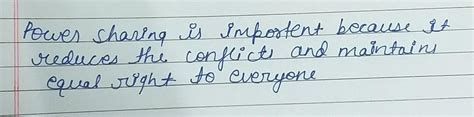 Power sharing is importent because it
reduces the conflicts and maintains
equal right to everyone